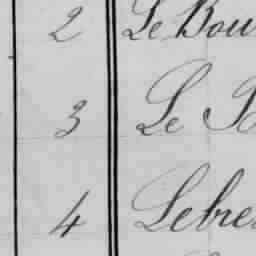 2 Le Bou
3 Le B
4 Lebre